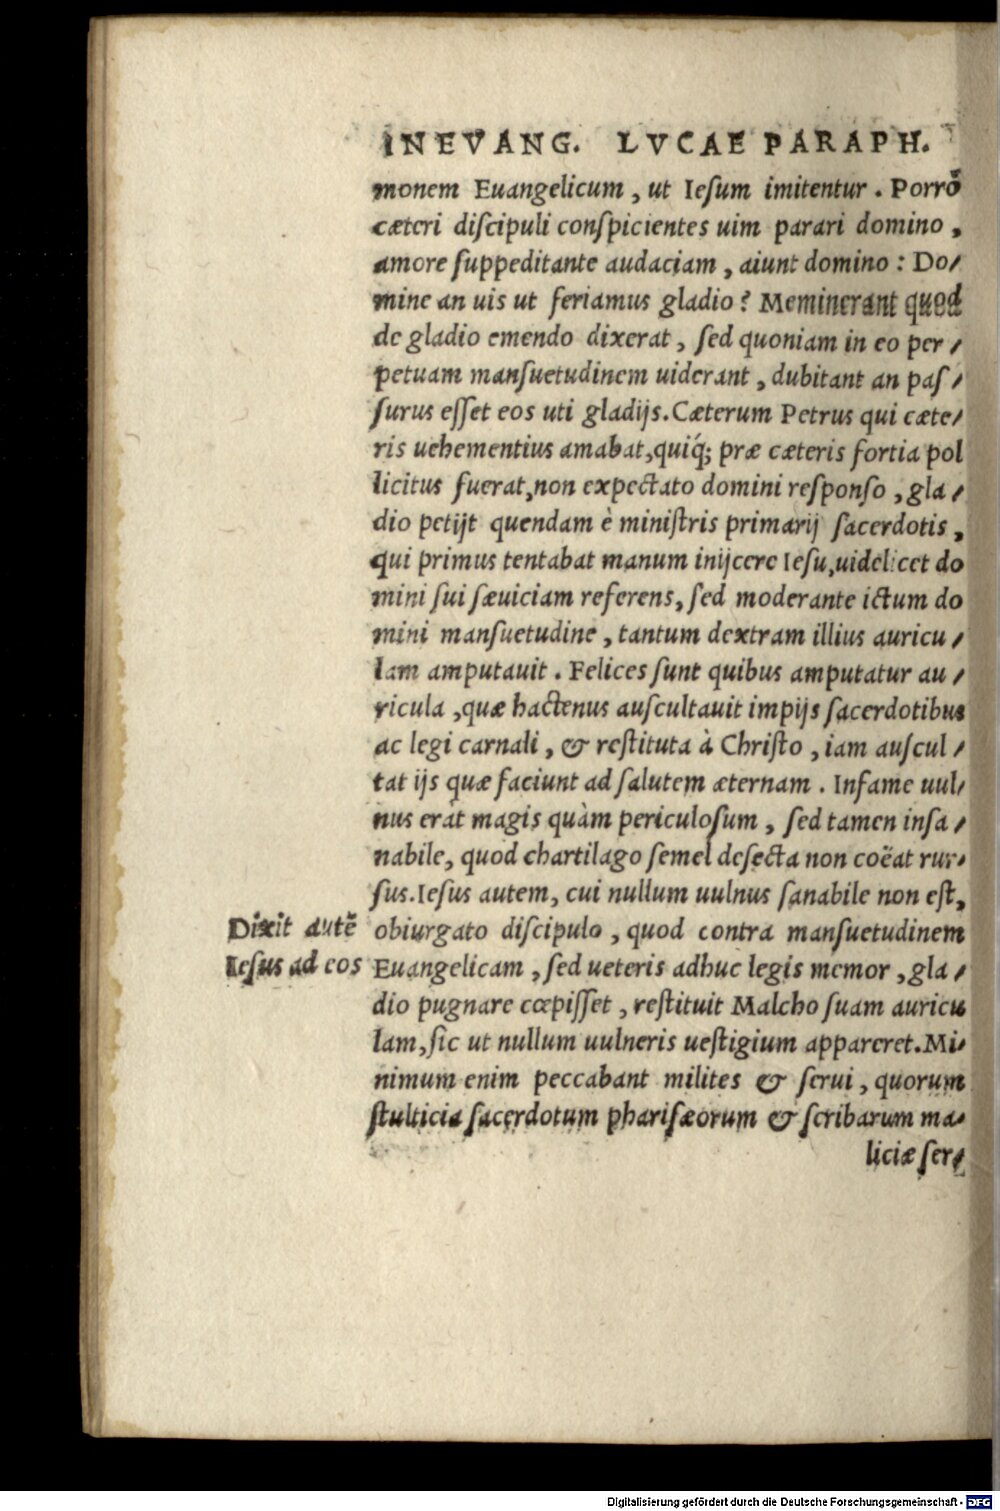 IN EVANG. LVCAE PARAPH.
monem Euangelicum, ut Iesum imitentur. Porrò
cæteri discipuli conspicientes uim parari domino,
amore suppeditante audaciam, aiunt domino: Do-
mine an uis ut feriamus gladio? Meminerant quod
de gladio emendo dixerat, sed quoniam in eo per-
petuam mansuetudinem uiderant, dubitant an pas-
surus esset eos uti gladijs. Cæterum Petrus qui cæte-
ris uehementius amabat, quiq́; præ cæteris fortia pol
licitus fuerat, non expectato domini responso, gla-
dio petijt quendam è ministris primarij sacerdotis,
qui primus tentabat manum inijcere Iesu, uidelicet do
mini sui sæuiciam referens, sed moderante ictum do
mini mansuetudine, tantum dextram illius auricu-
lam amputauit. Felices sunt quibus amputatur au-
ricula, quæ hactenus auscultauit impijs sacerdotibus
ac legi carnali, & restituta à Christo, iam auscul-
tat ijs quæ faciunt ad salutem æternam. Infame uul-
nus erat magis quàm periculosum, sed tamen insa-
nabile, quod chartilago semel desecta non coëat rur-
sus. Iesus autem, cui nullum uulnus sanabile non est,
Dixit autẽ
Iesus ad eos
obiurgato discipulo, quod contra mansuetudinem
Euangelicam, sed ueteris adhuc legis memor, gla-
dio pugnare cœpisset, restituit Malcho suam auricu
lam, sic ut nullum uulneris uestigium appareret. Mi-
nimum enim peccabant milites & serui, quorum
stulticia sacerdotum pharisæorum & scribarum ma-
liciæ ser-
Digitalisierung gefördert durch die Deutsche Forschungsgemeinschaft - DFG